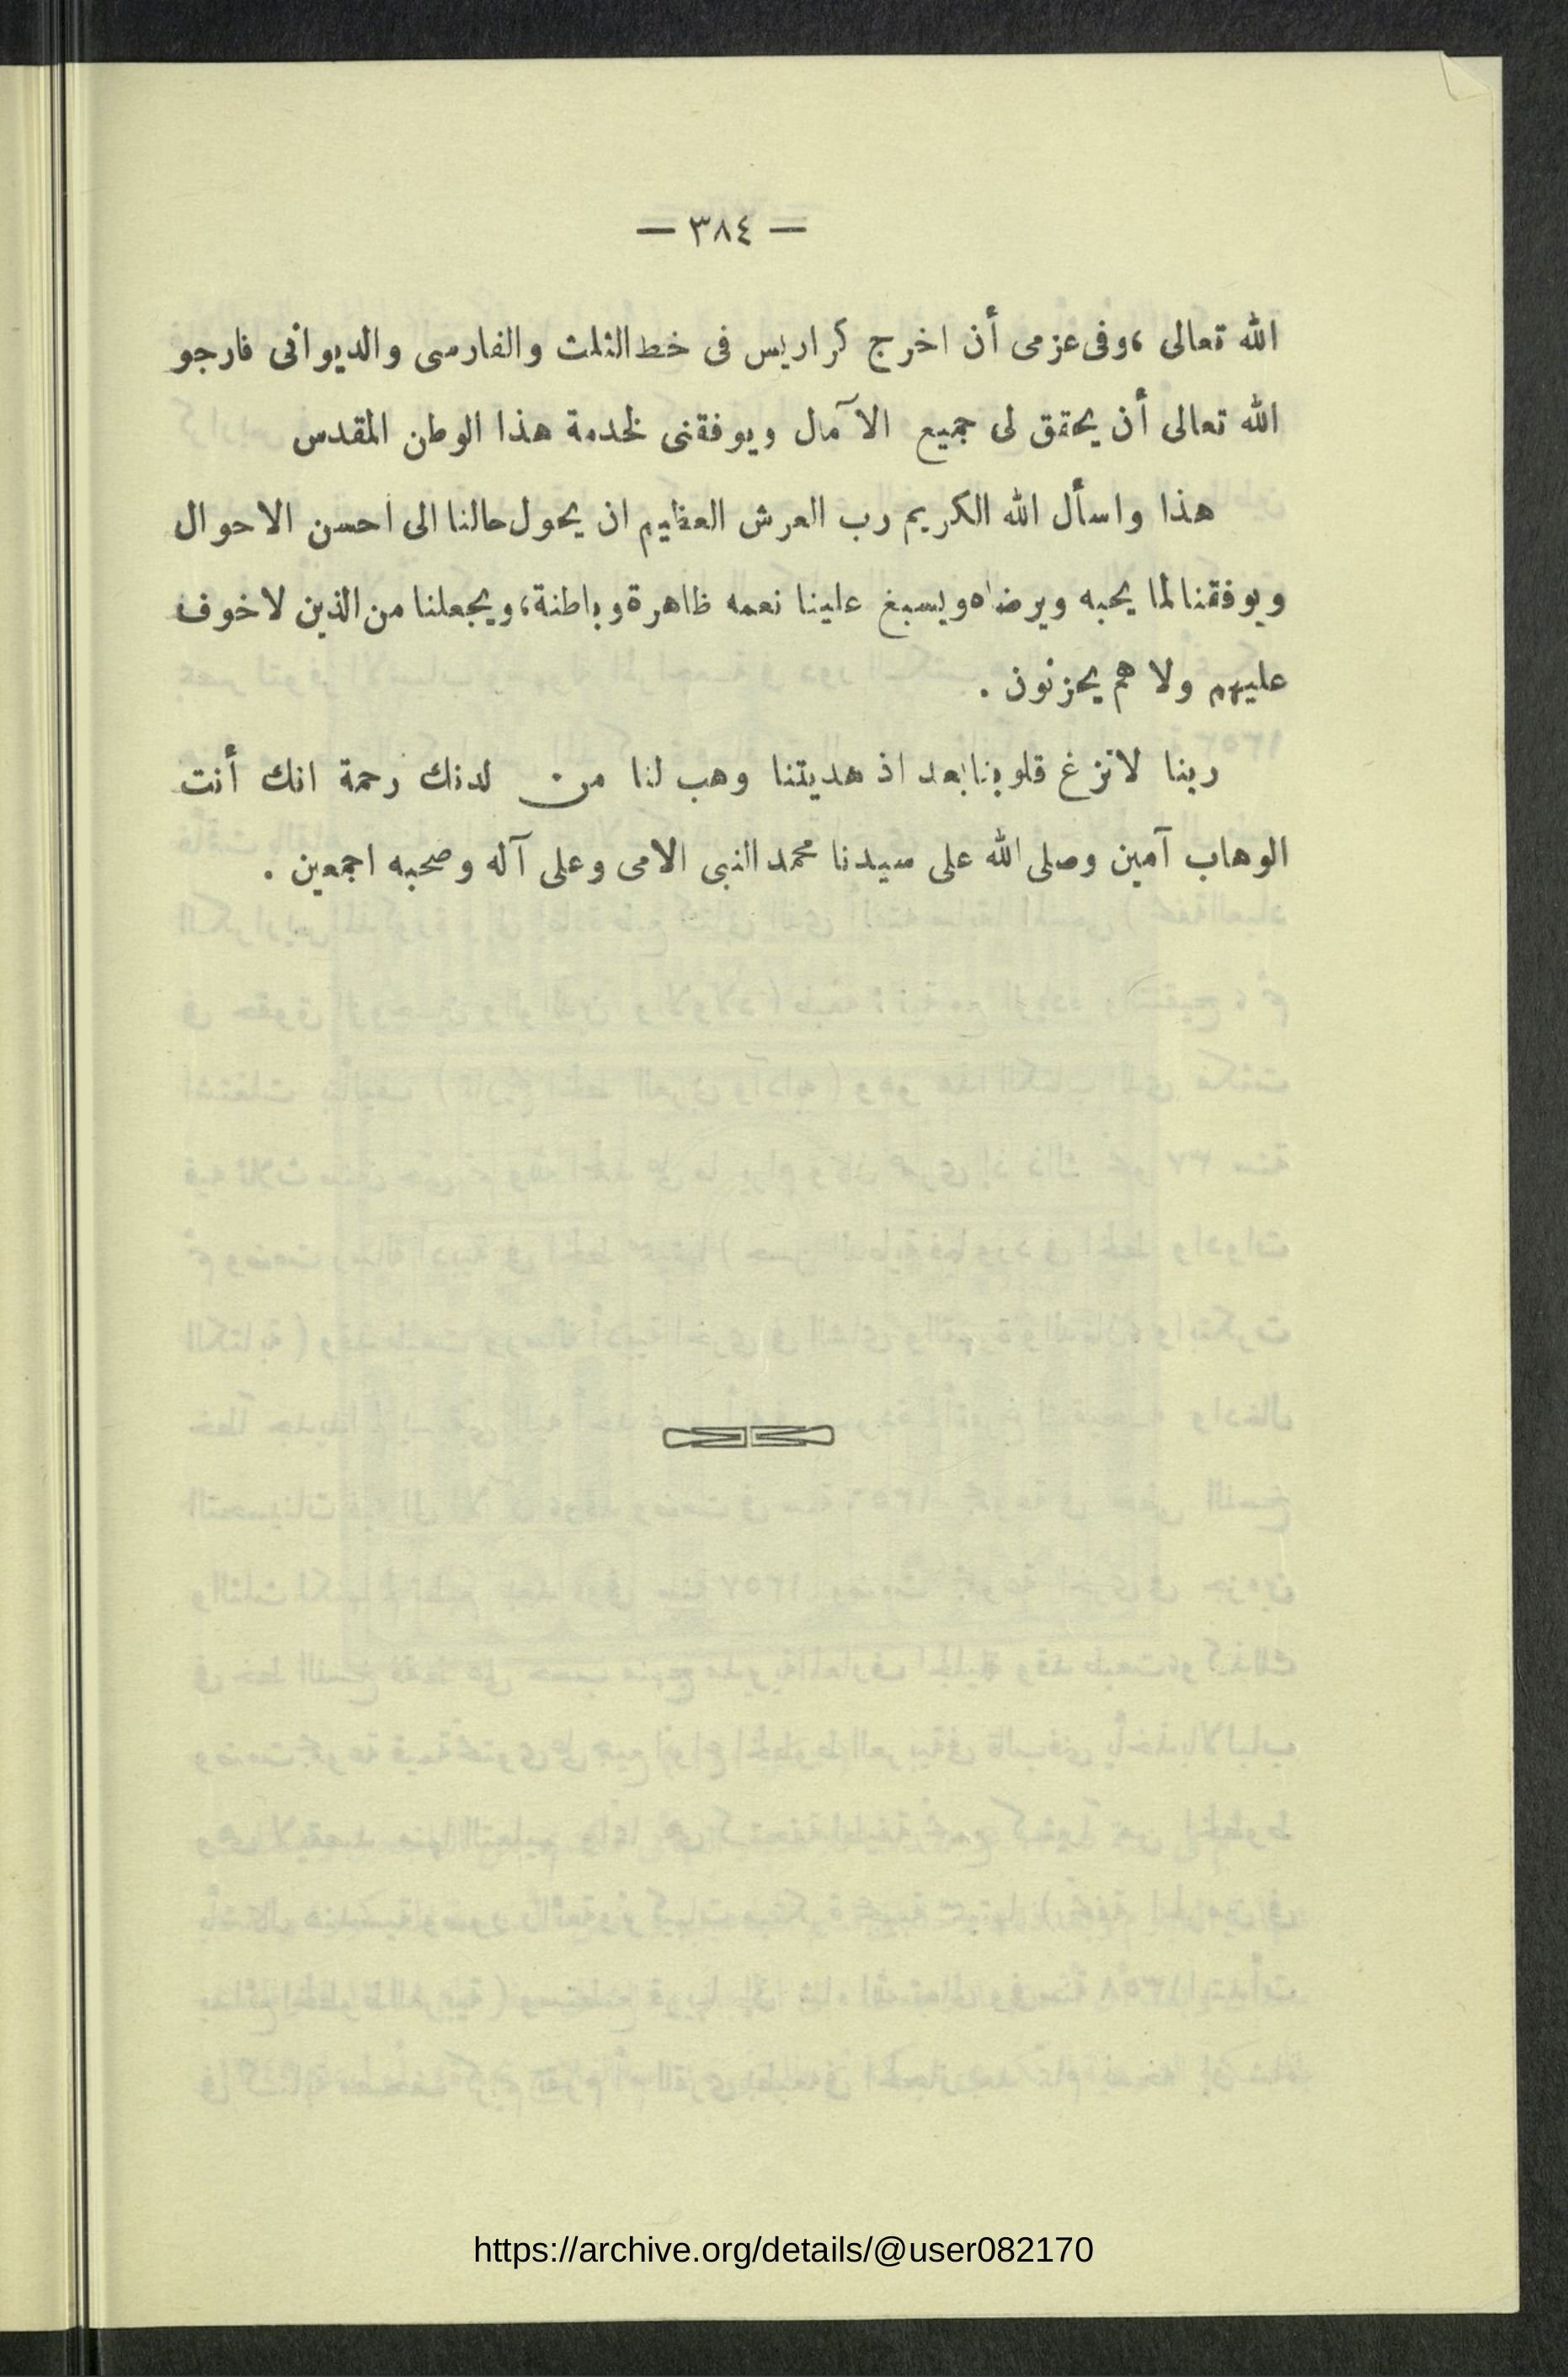 — ٣٨٤ —
الله تعالى ، وفى عزمى أن اخرج كراريس فى خط الثلث والفارسى والديوانى فارجو
الله تعالى أن يحقق لى جميع الآمال ويوفقنى لخدمة هذا الوطن المقدس
هذا واسأل الله الكريم رب العرش العظيم ان يحول حالنا الى احسن الاحوال
ويوفقنا لما يحبه ويرضاه ويسبغ علينا نعمه ظاهرة وباطنة ، ويجعلنا من الذين لا خوف
عليهم ولا هم يحزنون .
ربنا لا تزغ قلوبنا بعد اذ هديتنا وهب لنا من لدنك رحمة انك أنت
الوهاب آمين وصلى الله على سيدنا محمد النبى الامى وعلى آله وصحبه اجمعين .
https://archive.org/details/@user082170